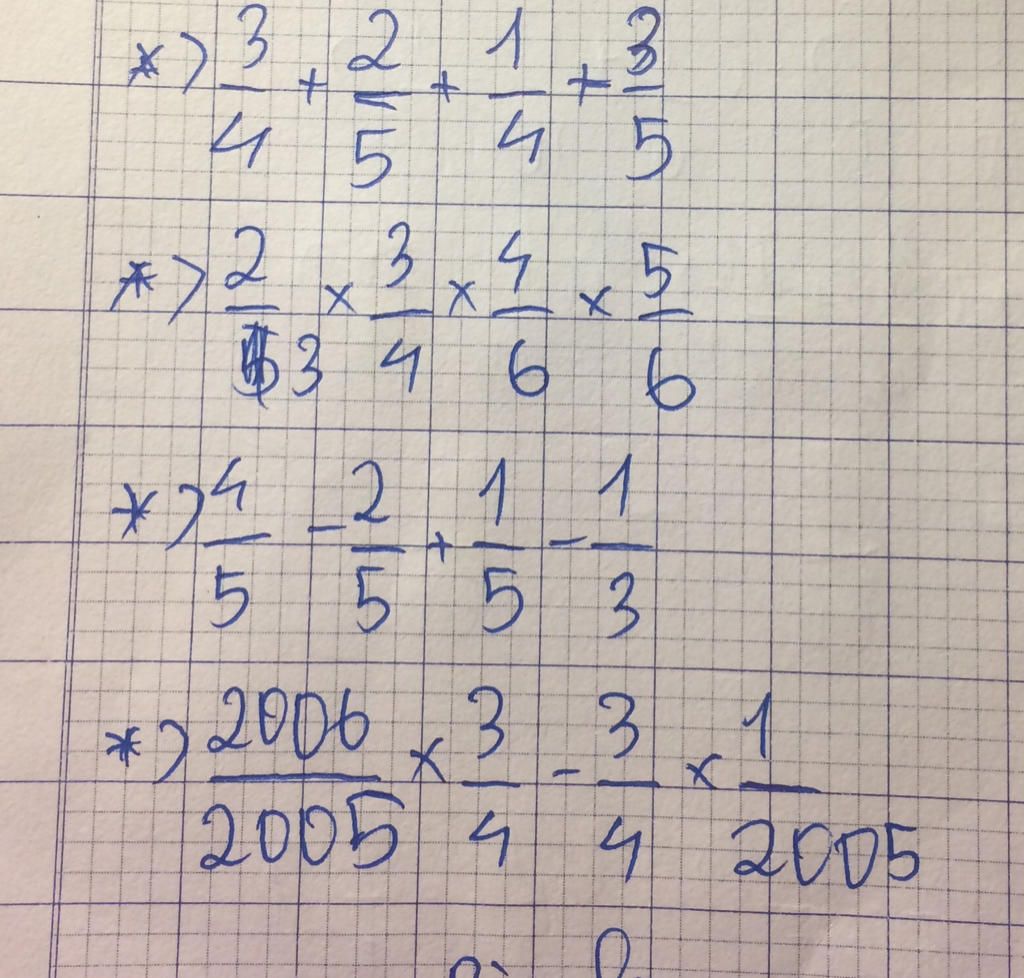 *) 3/4 + 2/5 + 1/4 + 3/5
*) 2/3 × 3/4 × 4/6 × 5/6
*) 4/5 - 2/5 + 1/5 - 1/3
*) 2006/2005 × 3/4 - 3/4 × 1/2005